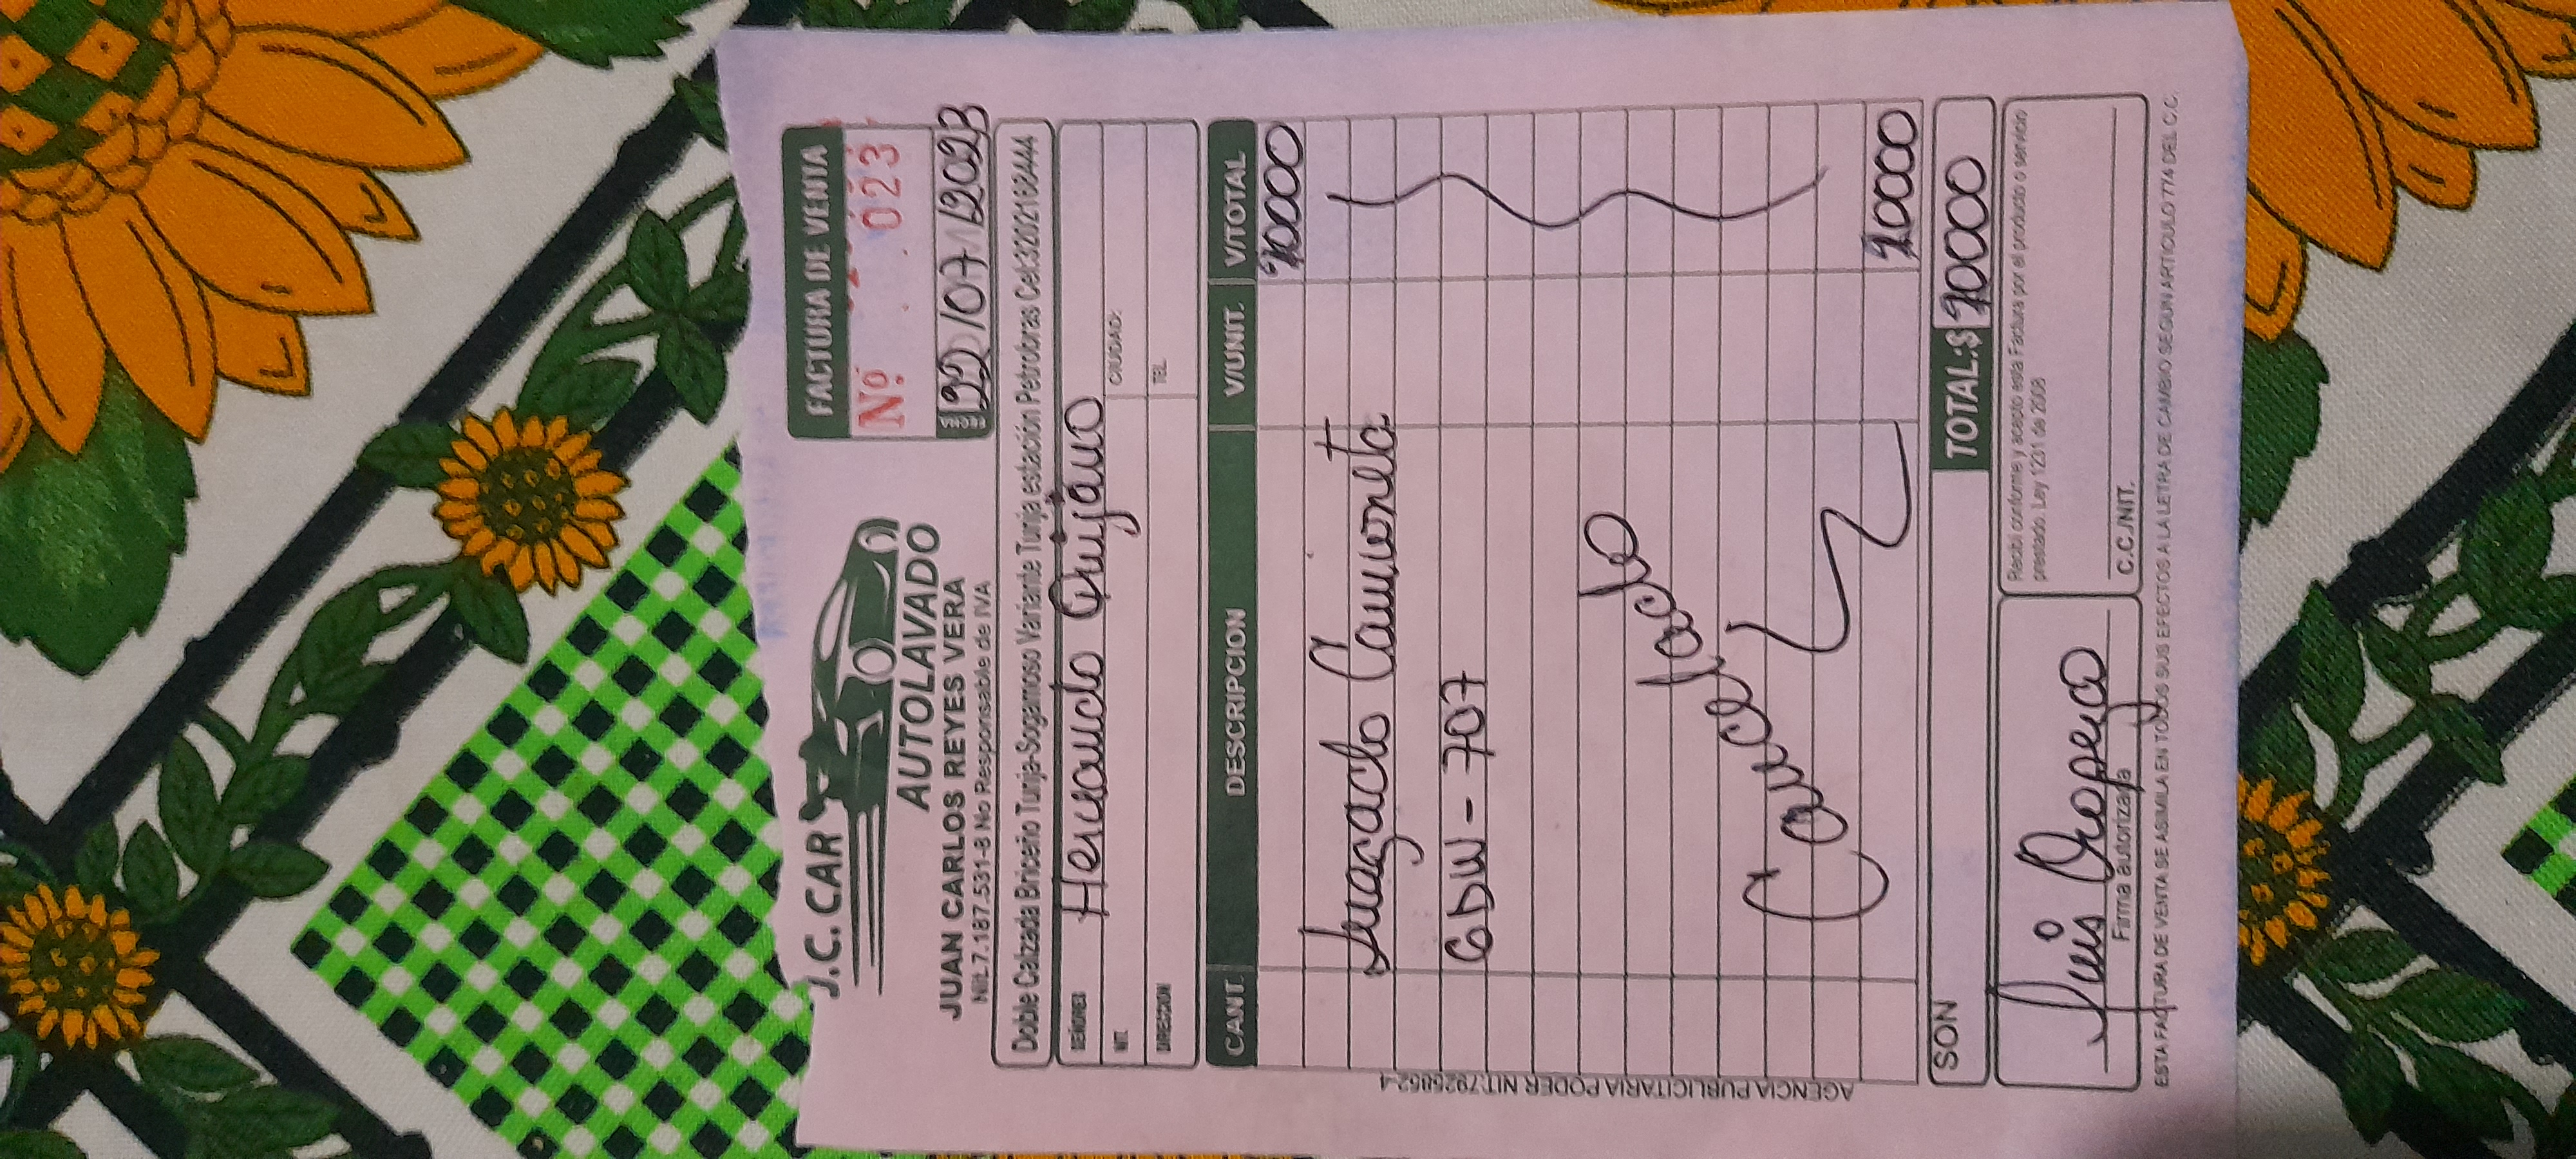 J.C. CAR
AUTOLAVADO
JUAN CARLOS REYES VERA
Nit.7.187.531-8 No Responsable de IVA
FACTURA DE VENTA
Nº 023
FECHA 22/07/2023
Doble Calzada Briceño Tunja-Sogamoso Variante Tunja estación Petrobras Cel:3202162444
SEÑORES Hernando Quijano
NIT. CIUDAD:
DIRECCION TEL.
CANT. DESCRIPCION V/UNIT. V/TOTAL
Camioneta
GDW-707
Cancelado
SON TOTAL:$
Luis Oropeza
Firma autorizada
Recibí conforme y acepto esta Factura por el producto o servicio
prestado. Ley 1231 de 2008
C.C./NIT.
ESTA FACTURA DE VENTA SE ASIMILA EN TODOS SUS EFECTOS A LA LETRA DE CAMBIO SEGUN ARTICULO 774 DEL C.C.
AGENCIA PUBLICITARIA PODER NIT:7925852-4